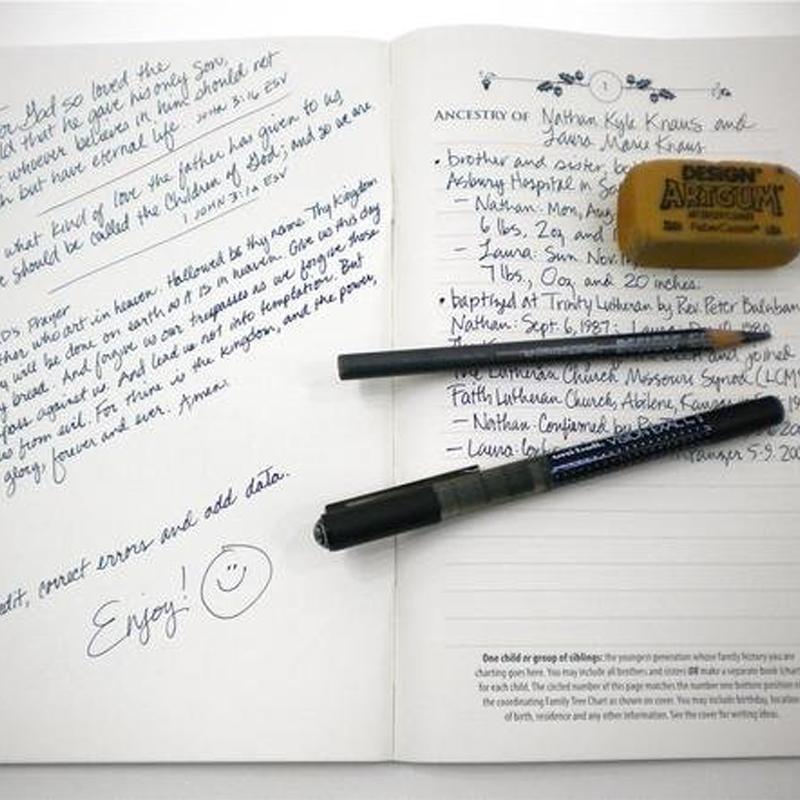 God so loved the
that he gave his only Son,
whoever believes in him should not
but have eternal life. JOHN 3:16 ESV
what kind of love the father has given to us,
should be called the Children of God; and so we are.
1 JOHN 3:1A ESV
Prayer
who art in heaven. Hallowed be thy name. Thy Kingdom
will be done on earth as it is in heaven. Give us this day
bread. And forgive us our trespasses as we forgive those
against us. And lead us not into temptation. But
us from evil. For thine is the kingdom, and the power,
glory, forever and ever. Amen.
edit, correct errors and add data.
Enjoy!
1
ANCESTRY OF Nathan Kyle Kraus and
Laura Marie Kraus
• brother and sister,
Asbury Hospital in
– Nathan: Mon, Aug
6 lbs, 2oz, and
– Laura: Sun Nov.
7 lbs, 0oz, and 20 inches.
• baptized at Trinity Lutheran by Rev. Peter Burnham
Nathan: Sept. 6, 1987; Laura
and joined
The Lutheran Church Missouri Synod (LCMS
Faith Lutheran Church, Abilene, Kansas
– Nathan: Confirmed by
– Laura: 5-9-200
DESIGN
ARTGUM
FaberCastell USA
uni-ball VISION ELITE
One child or group of siblings: the youngest generation whose family history you are
charting goes here. You may include all brothers and sisters OR make a separate book (chart
for each child. The circled number of this page matches the number one bottom position
the coordinating Family Tree Chart as shown on cover. You may include birthday, location
of birth, residence and any other information. See the cover for writing ideas.